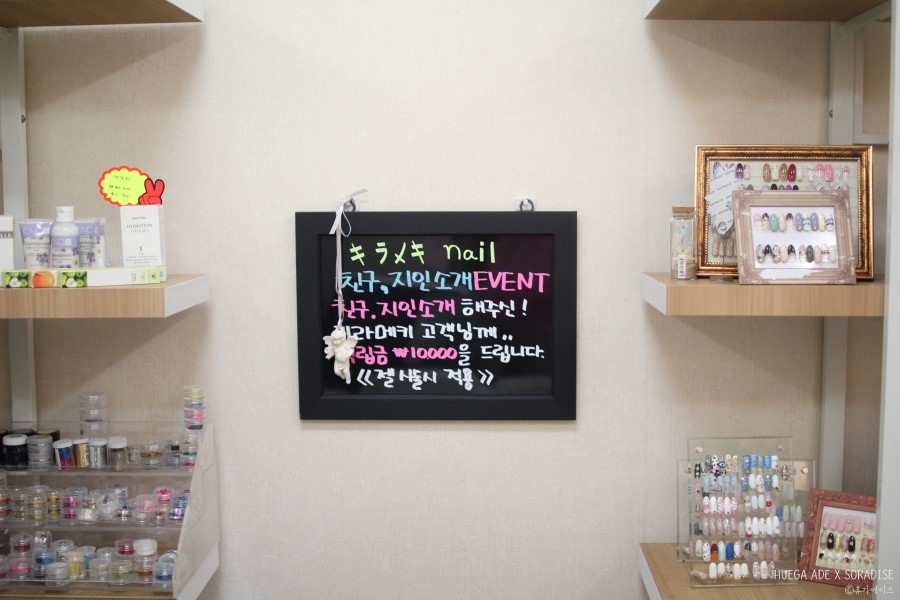 キラメキ nail
친구,지인소개EVENT
친구.지인소개 해주신!
키라메키 고객님께..
적립금 ₩10.000을 드립니다.
《젤 시술시 적용》
HUEGA ADE X SORADISE
©휴가에이드